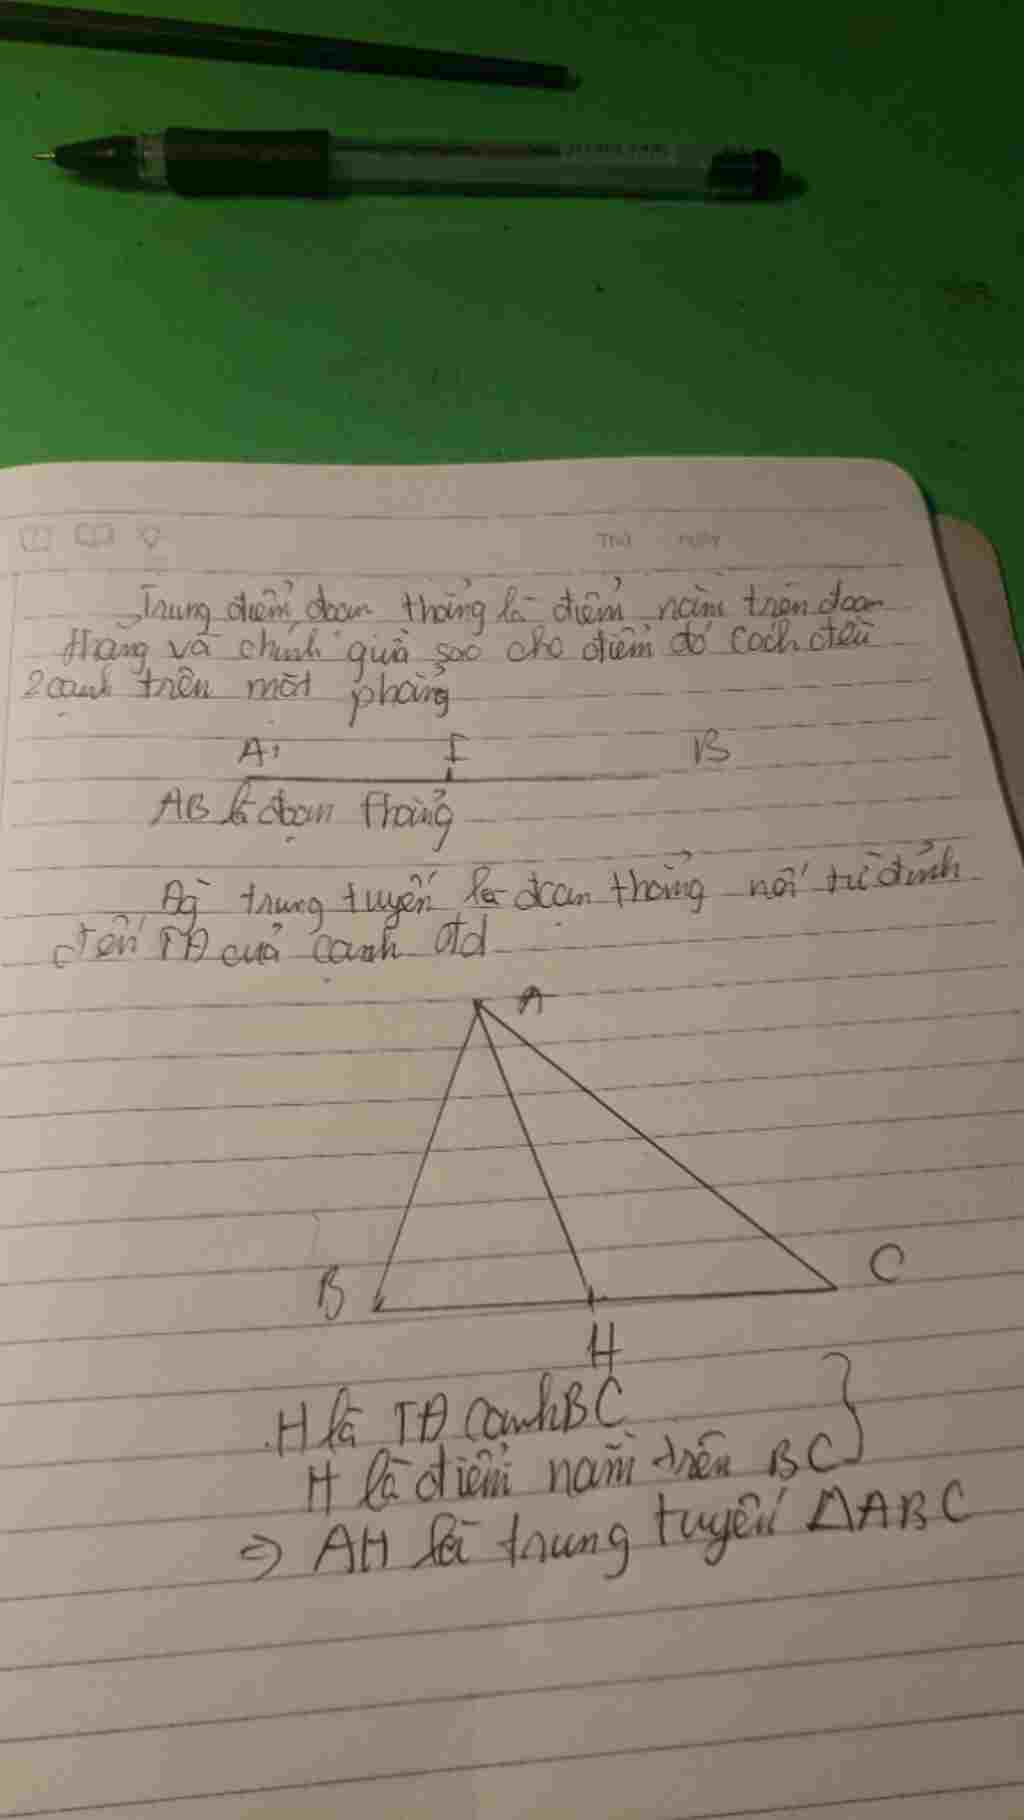 Thứ ngày
Trung điểm đoạn thẳng là điểm nằm trên đoạn
thẳng và chính giữa sao cho điểm đó cách đều
2 cạnh trên một phẳng
A I B
AB là đoạn thẳng
trung tuyến là đoạn thẳng nối từ đỉnh
đến TĐ của cạnh đd
A
B C
H
H là TĐ cạnh BC
H là điểm nằm trên BC
=> AH là trung tuyến ΔABC